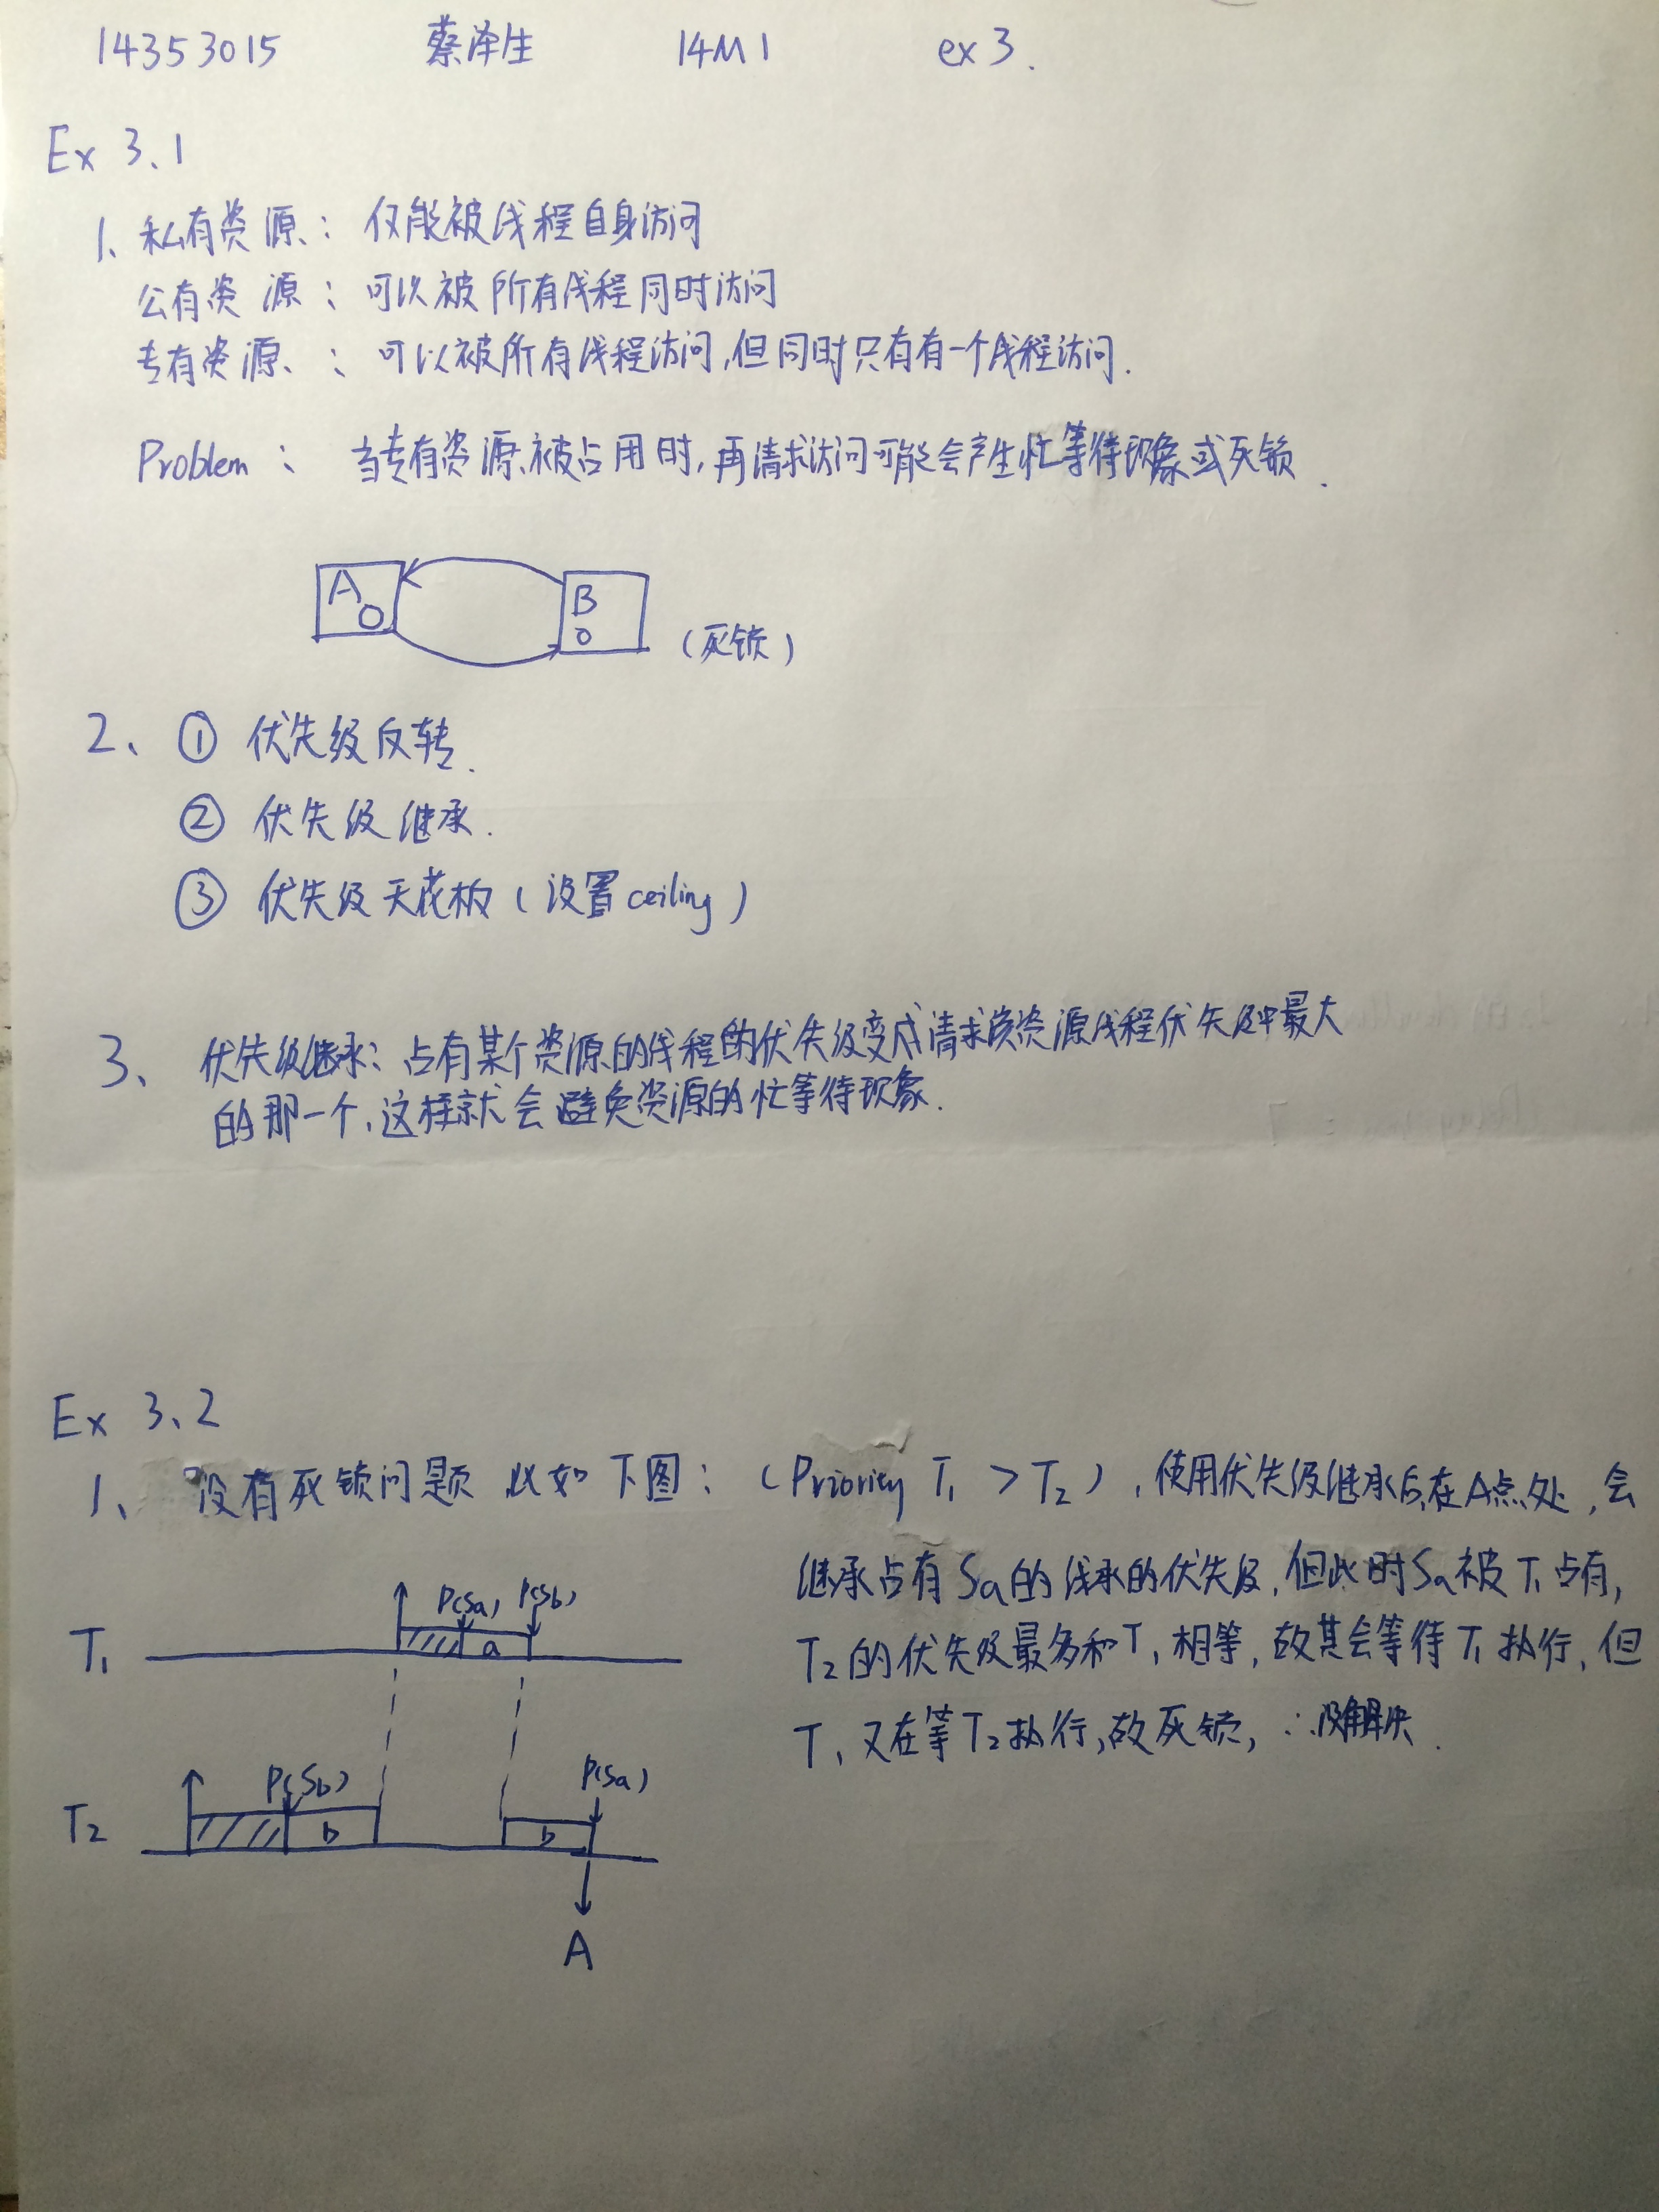 14353015 蔡泽生 14M1 ex 3.
Ex 3、1
1、私有资源：仅能被线程自身访问
公有资源：可以被所有线程同时访问
专有资源、：可以被所有线程访问,但同时只有有一个线程访问.
Problem：当专有资源被占用时,再请求访问可能会产生忙等待现象或死锁.
A B
(死锁)
2、① 优先级反转.
② 优先级继承.
③ 优先级天花板(设置ceiling)
3、优先级继承：占有某个资源的线程的优先级变成请求该资源线程优先级中最大
的那一个,这样就会避免资源的忙等待现象.
Ex 3、2
1、没有死锁问题 比如下图：(Priority T1 > T2),使用优先级继承后,在A点处,会
继承占有Sa的线承的优先级,但此时Sa被T1占有,
T2的优先级最多和T1相等,故其会等待T1执行,但
T1又在等T2执行,故死锁,∴没解决.
P(Sa) P(Sb)
T1 a
P(Sb) P(Sa)
T2 b b
A